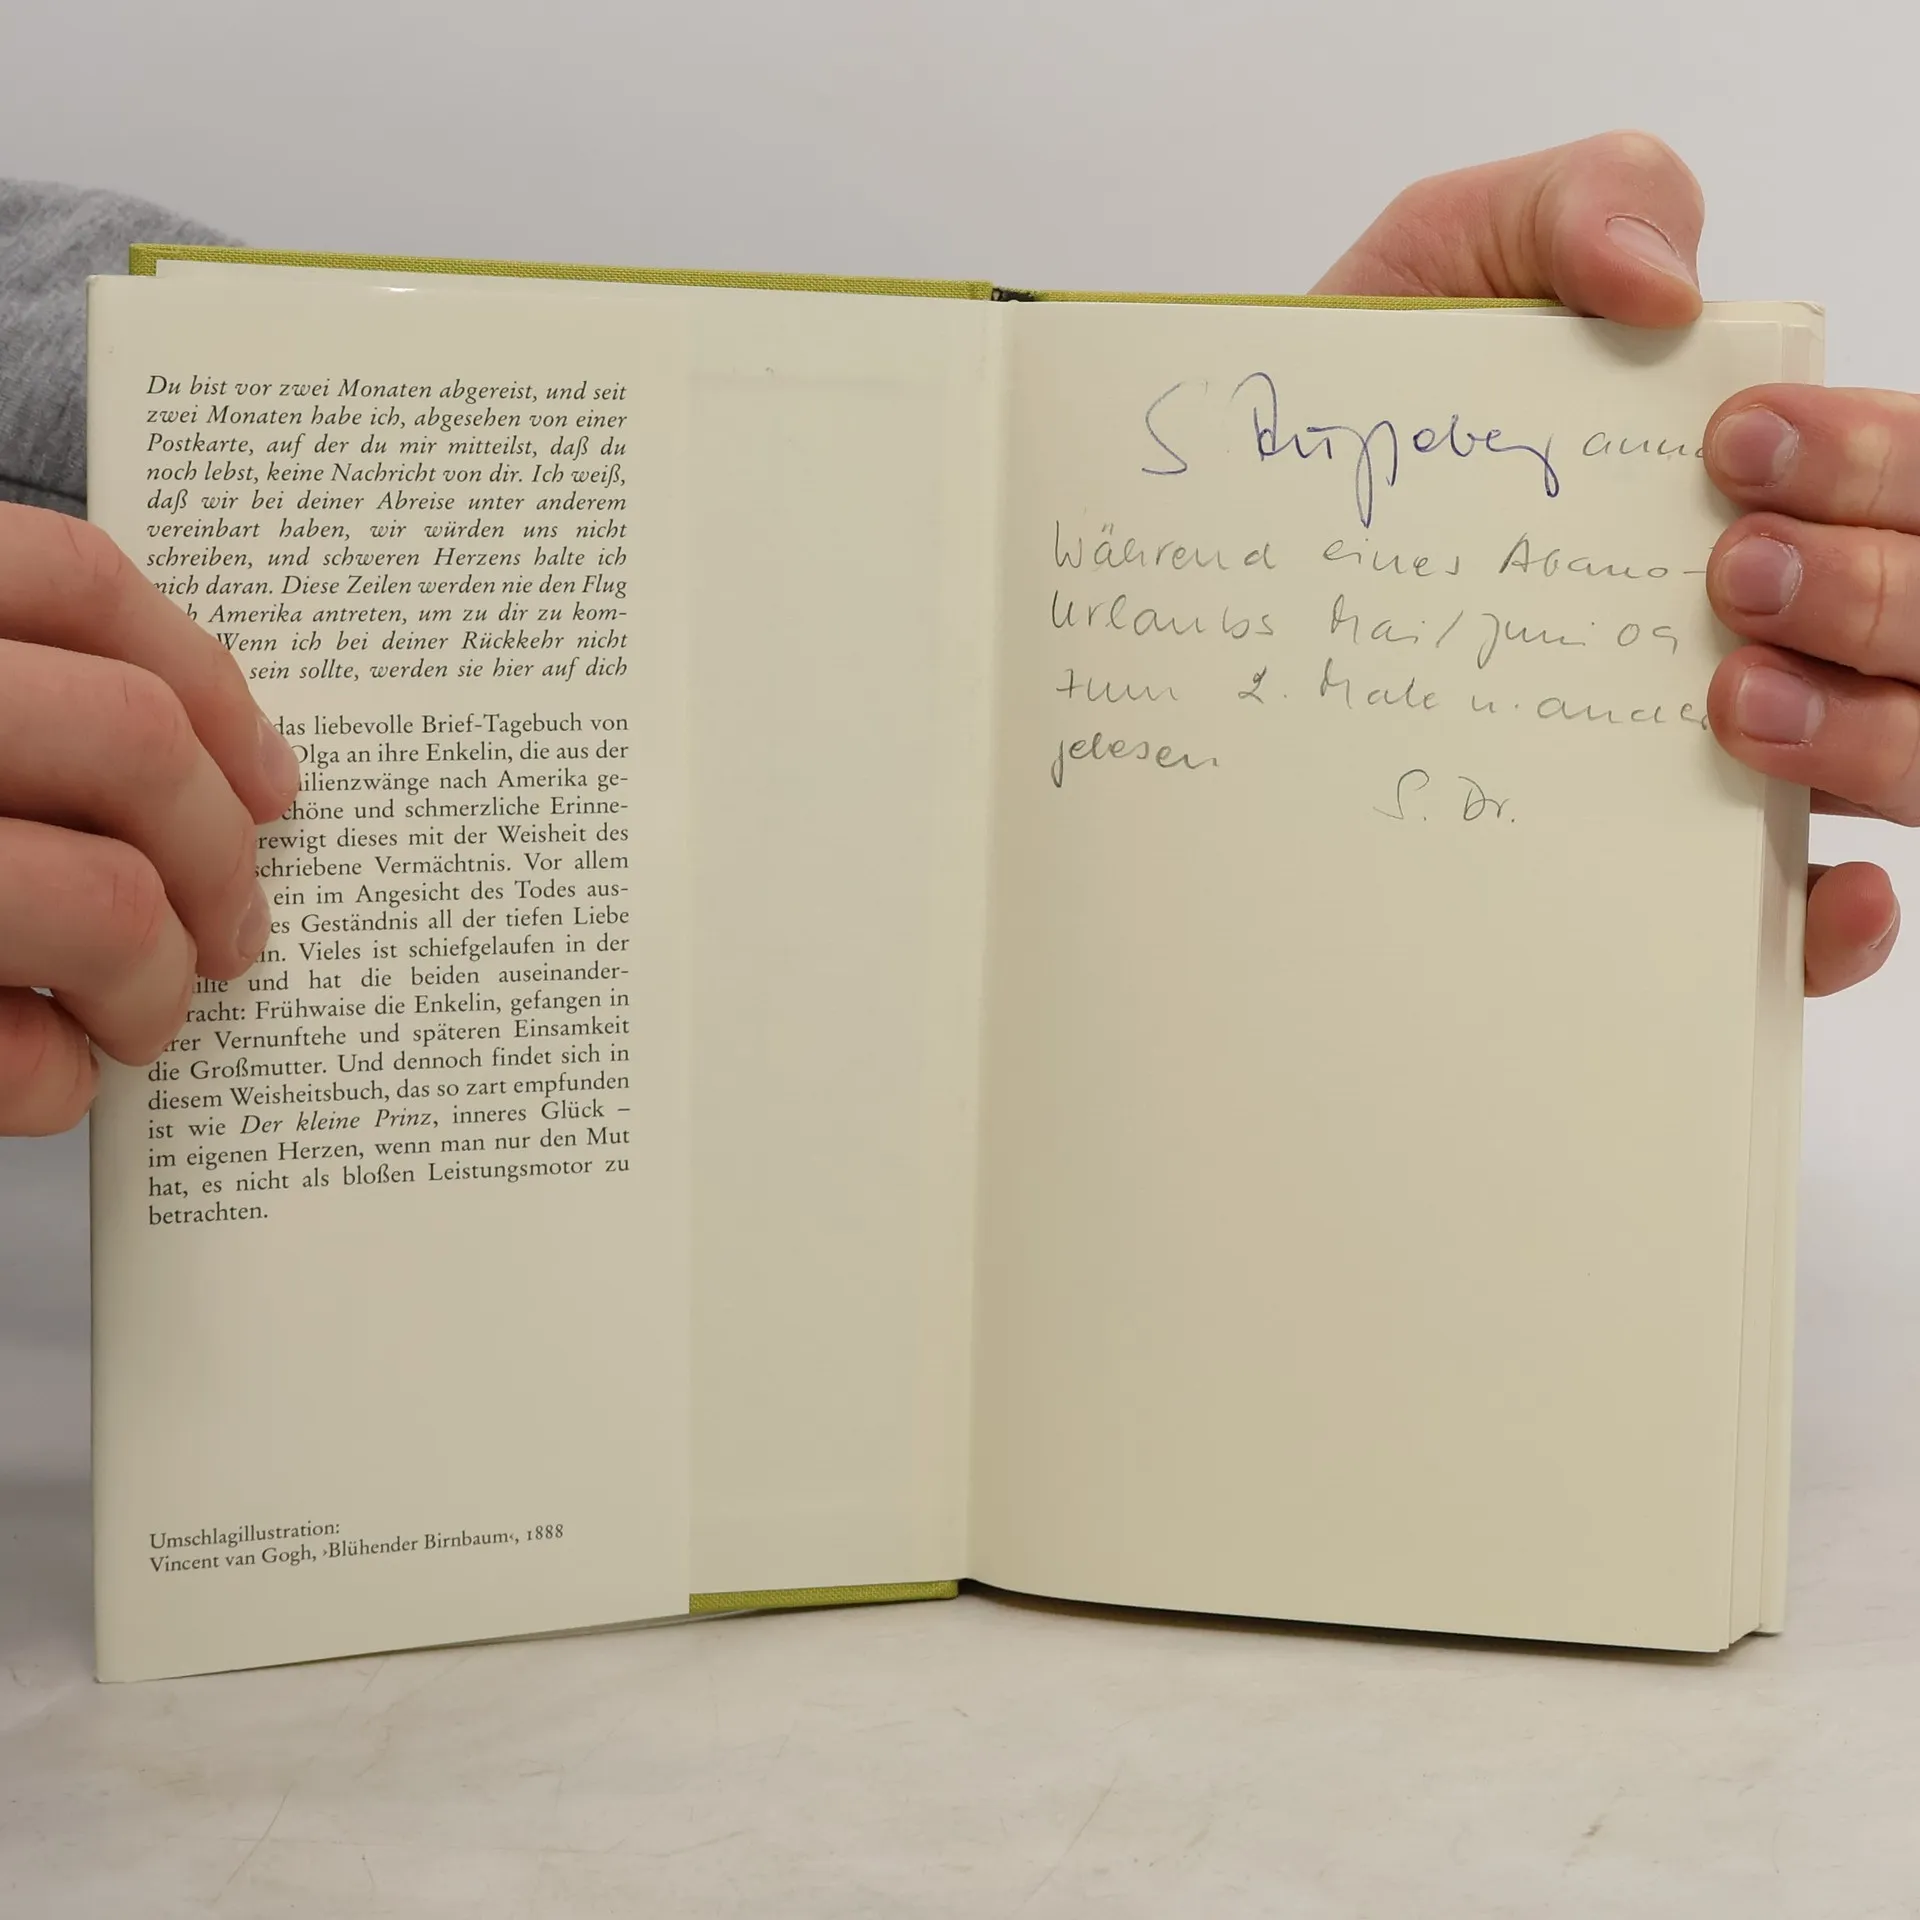 Du bist vor zwei Monaten abgereist, und seit
zwei Monaten habe ich, abgesehen von einer
Postkarte, auf der du mir mitteilst, daß du
noch lebst, keine Nachricht von dir. Ich weiß,
daß wir bei deiner Abreise unter anderem
vereinbart haben, wir würden uns nicht
schreiben, und schweren Herzens halte ich
mich daran. Diese Zeilen werden nie den Flug
Amerika antreten, um zu dir zu kom-
Wenn ich bei deiner Rückkehr nicht
sein sollte, werden sie hier auf dich
das liebevolle Brief-Tagebuch von
Olga an ihre Enkelin, die aus der
nach Amerika ge-
und schmerzliche Erinne-
dieses mit der Weisheit des
Vermächtnis. Vor allem
ein im Angesicht des Todes aus-
Geständnis all der tiefen Liebe
Vieles ist schiefgelaufen in der
und hat die beiden auseinander-
Frühwaise die Enkelin, gefangen in
Vernunftehe und späteren Einsamkeit
die Großmutter. Und dennoch findet sich in
diesem Weisheitsbuch, das so zart empfunden
ist wie Der kleine Prinz, inneres Glück –
im eigenen Herzen, wenn man nur den Mut
hat, es nicht als bloßen Leistungsmotor zu
betrachten.
Umschlagillustration:
Vincent van Gogh, ›Blühender Birnbaum‹, 1888
S
Während eines Abano-
Urlaubs Mai/Juni 09
zum 2. Male u.
gelesen.
S. Dr.